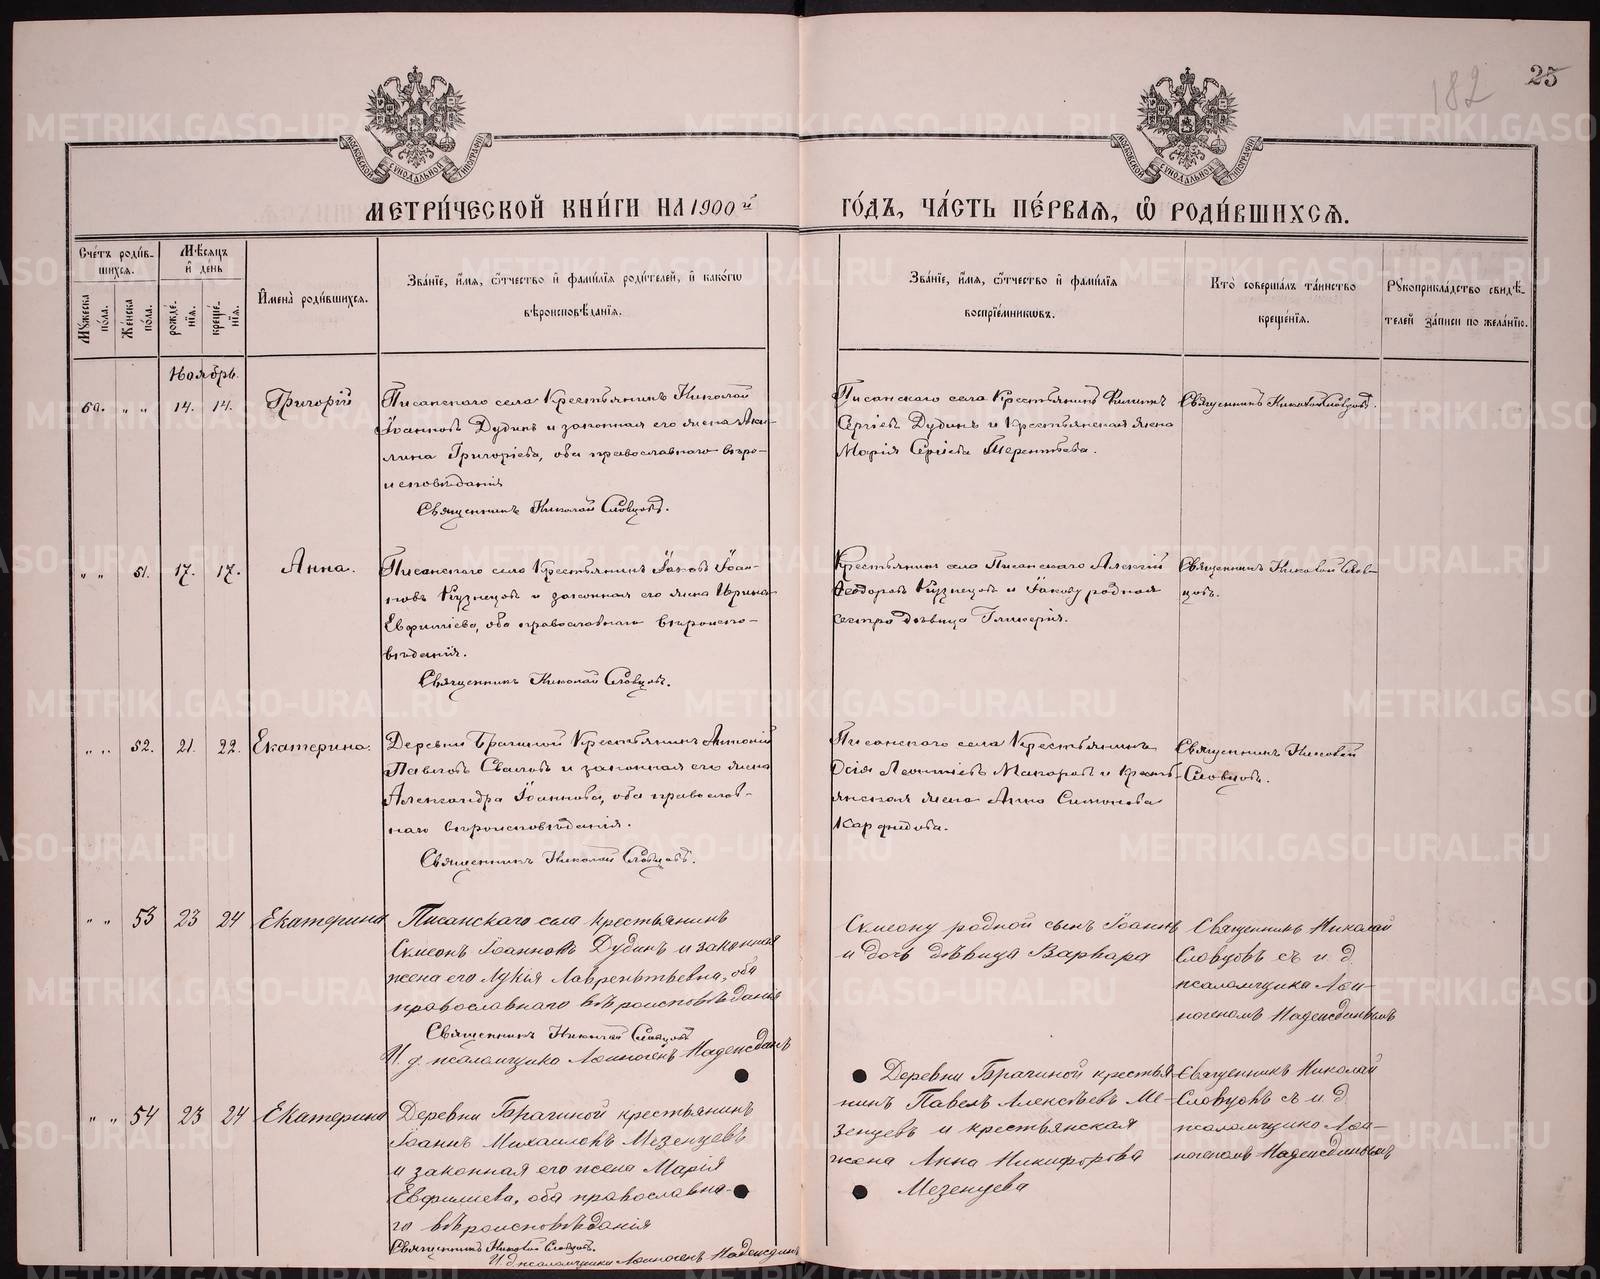 182
25
МЕТРИ́ЧЕСКОЙ КНИ́ГИ НА 1900й ГО́ДЪ, ЧА́СТЬ ПЕ́РВАЯ, Ѽ РОДИ́ВШИХСЯ.
Сче́тъ роди́вшихся.
Мужеска по́ла.
Же́нска по́ла.
Мѣ́сяцъ и҆ де́нь
рожде́нїя.
креще́нїя.
И҆мена̀ роди́вшихся.
Зва́нїе, и҆́мя, ѻ҆́тчество и҆ фами́лїя роди́телей, и҆ како́гѡ
вѣроисповѣ́данїя.
Зва́нїе, и҆́мя, ѻ҆́тчество и҆ фами́лїя
воспрїе́мникѡвъ.
Кто̀ соверша́лъ та́инство
креще́нїя.
Рукоприкла́дство свидѣ́-
телей за́писи по жела́нїю.
Ноябрь
50. " " 14. 14. Григорій
Писанскаго села Крестьянинъ Николай
Іоанновъ Дудинъ и законная его жена Аки-
лина Григоріева, оба православнаго вѣро-
исповѣданія
Священникъ Николай Словцовъ.
Писанскаго села Крестьянинъ Филиппъ
Сергіевъ Дудинъ и Крестьянская жена
Марія Сергіева Терентьева.
Священникъ Николай Словцовъ.
" " 51. 17. 17. Анна.
Писанскаго села Крестьянинъ Іаковъ Іоан-
новъ Кузнецовъ и законная его жена Ирина
Евфиміева, оба православнаго вѣроиспо-
вѣданія.
Священникъ Николай Словцовъ.
Крестьянинъ села Писанскаго Алексій
Ѳеодоровъ Кузнецовъ и Іакову родная
сестра дѣвица Гликерія.
Священникъ Николай Слов-
цовъ.
" " 52. 21. 22. Екатерина.
Деревни Брагиной Крестьянинъ Антоній
Павловъ и законная его жена
Александра Іоаннова, оба православ-
наго вѣроисповѣданія.
Священникъ Николай Словцовъ.
Писанскаго села Крестьянинъ
Осія Леонтіевъ Макаровъ и Кресть-
янская жена Анна Симонова
Священникъ Николай
Словцовъ.
" " 53 23 24 Екатерина
Писанскаго села крестьянинъ
Симеонъ Іоанновъ Дудинъ и законная
жена его Лукія Лаврентьевна, оба
православнаго вѣроисповѣданія
Священникъ Николай Словцовъ
И. д. псаломщика Логиновъ Надеждинъ
Симеону родной сынъ Іоаннъ
и дочь дѣвица Варвара
Священникъ Николай
Словцовъ съ и. д.
псаломщика
Надеждинымъ
" " 54 23 24 Екатерина
Деревни Брагиной крестьянинъ
Іоаннъ Михаиловъ Мезенцевъ
и законная его жена Марія
Евфиміева, оба православна-
го вѣроисповѣданія
Священникъ Николай Словцовъ.
И. д. псаломщика Надеждинъ
Деревни Брагиной кресть-
нинъ Павелъ Алексѣевъ Ме-
зенцевъ и крестьянская
жена Анна Никифорова
Мезенцева
Священникъ Николай
Словцовъ съ и. д.
псаломщика
Надеждинымъ
METRIKI.GASO-URAL.RU